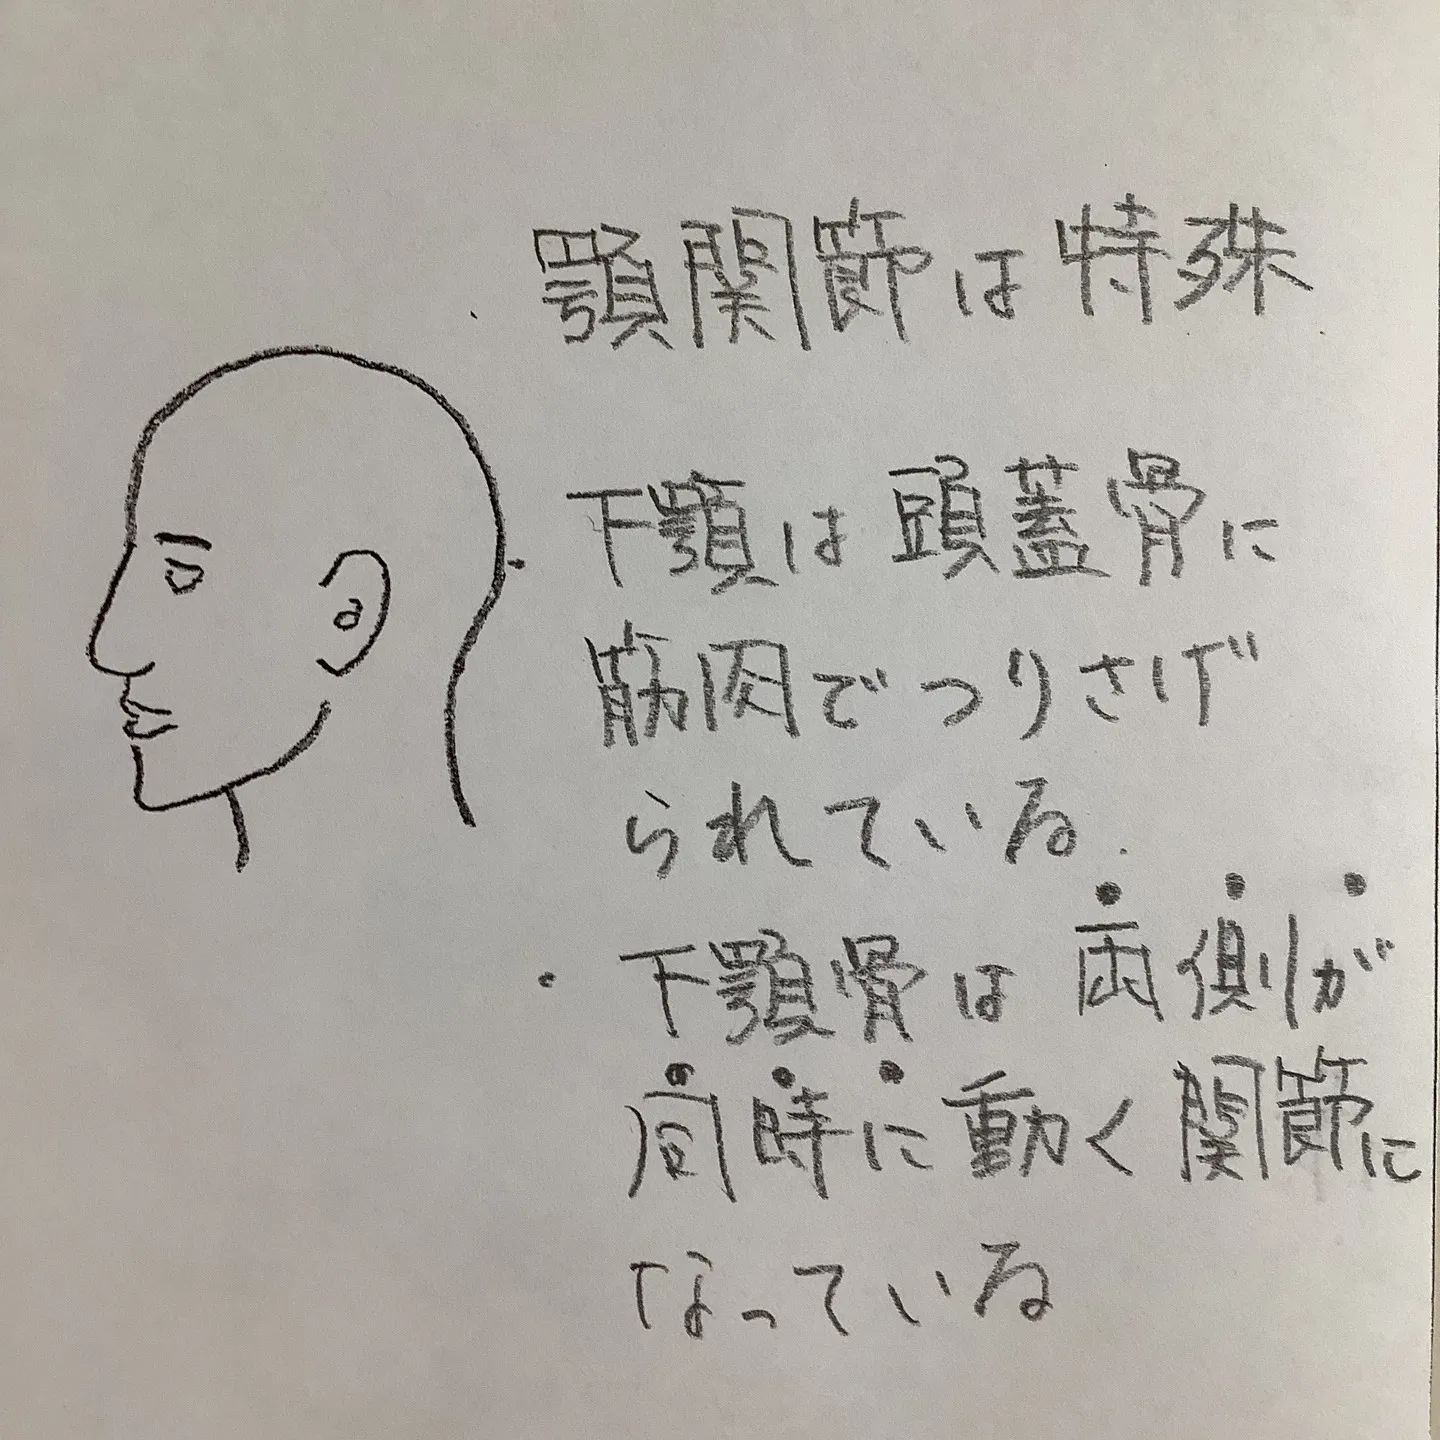 ・顎関節は特殊
・下顎は頭蓋骨に
筋肉でつりさげ
られている.
・下顎骨は両側が
同時に動く関節に
なっている